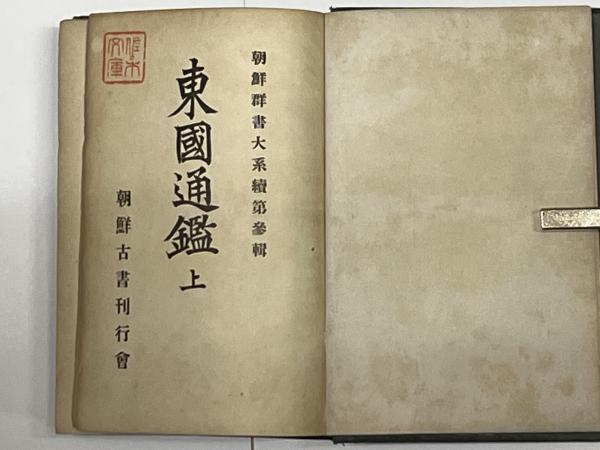 朝鮮群書大系續第參輯
東國通鑑上
朝鮮古書刊行會
文庫